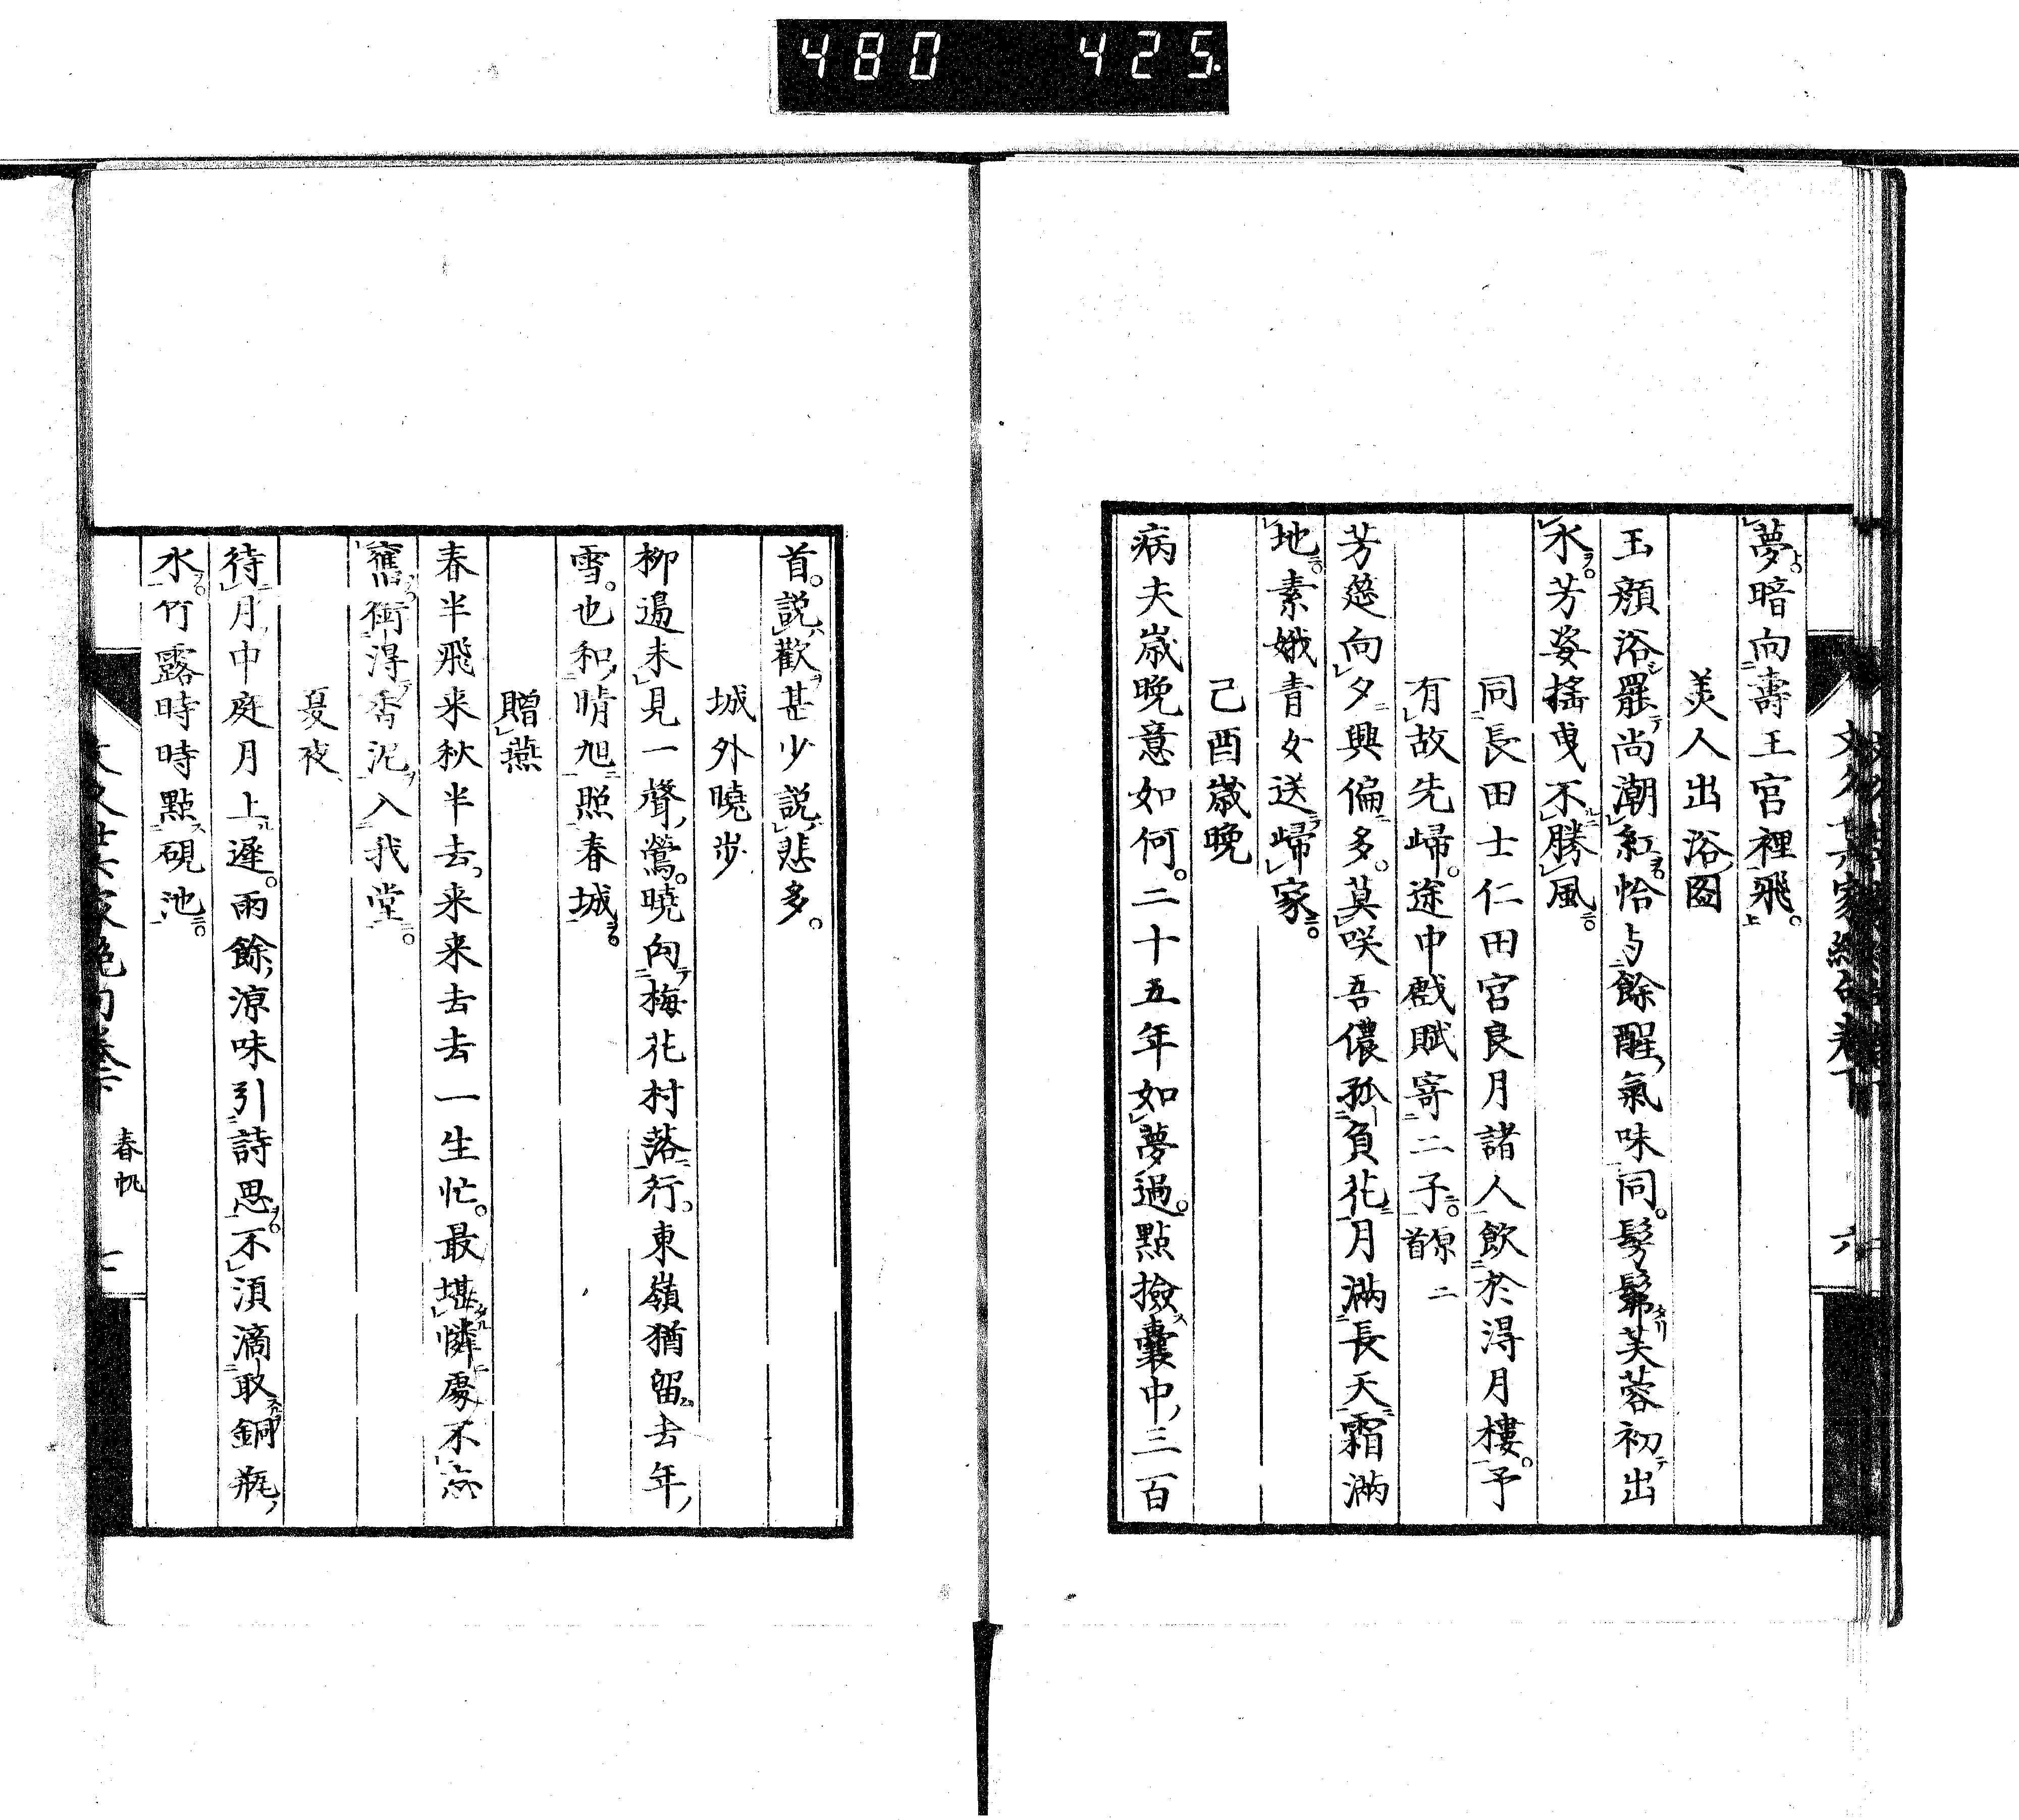 480 425
夢暗向壽王宮裡飛。
美人出浴圖
玉顏浴罷尚潮紅恰与餘醒氣味同。髣髴芙蓉初出
水芳姿搖曳不勝風。
同長田士仁田宮良月諸人飲於得月樓。予
有故先歸。途中戲賦寄二子。原二首
芳筵向夕興偏多。莫咲吾儂孤負花月滿長天霜滿
地素娥青女送歸家。
己酉歲晚
病夫歲晚意如何。二十五年如夢過。點撿囊中三百
首。説歡甚少説悲多。
城外曉步
柳邊未見一聲鶯。曉向梅花村落行。東嶺猶留去年
雪。也和晴旭照春城
贈燕
春半飛来秋半去来来去去一生忙。最堪憐處不忘
舊銜得香泥入我堂。
夏夜
待月中庭月上遲。雨餘涼味引詩思。不須滴取銅瓶
水。竹露時時點硯池。
春帆